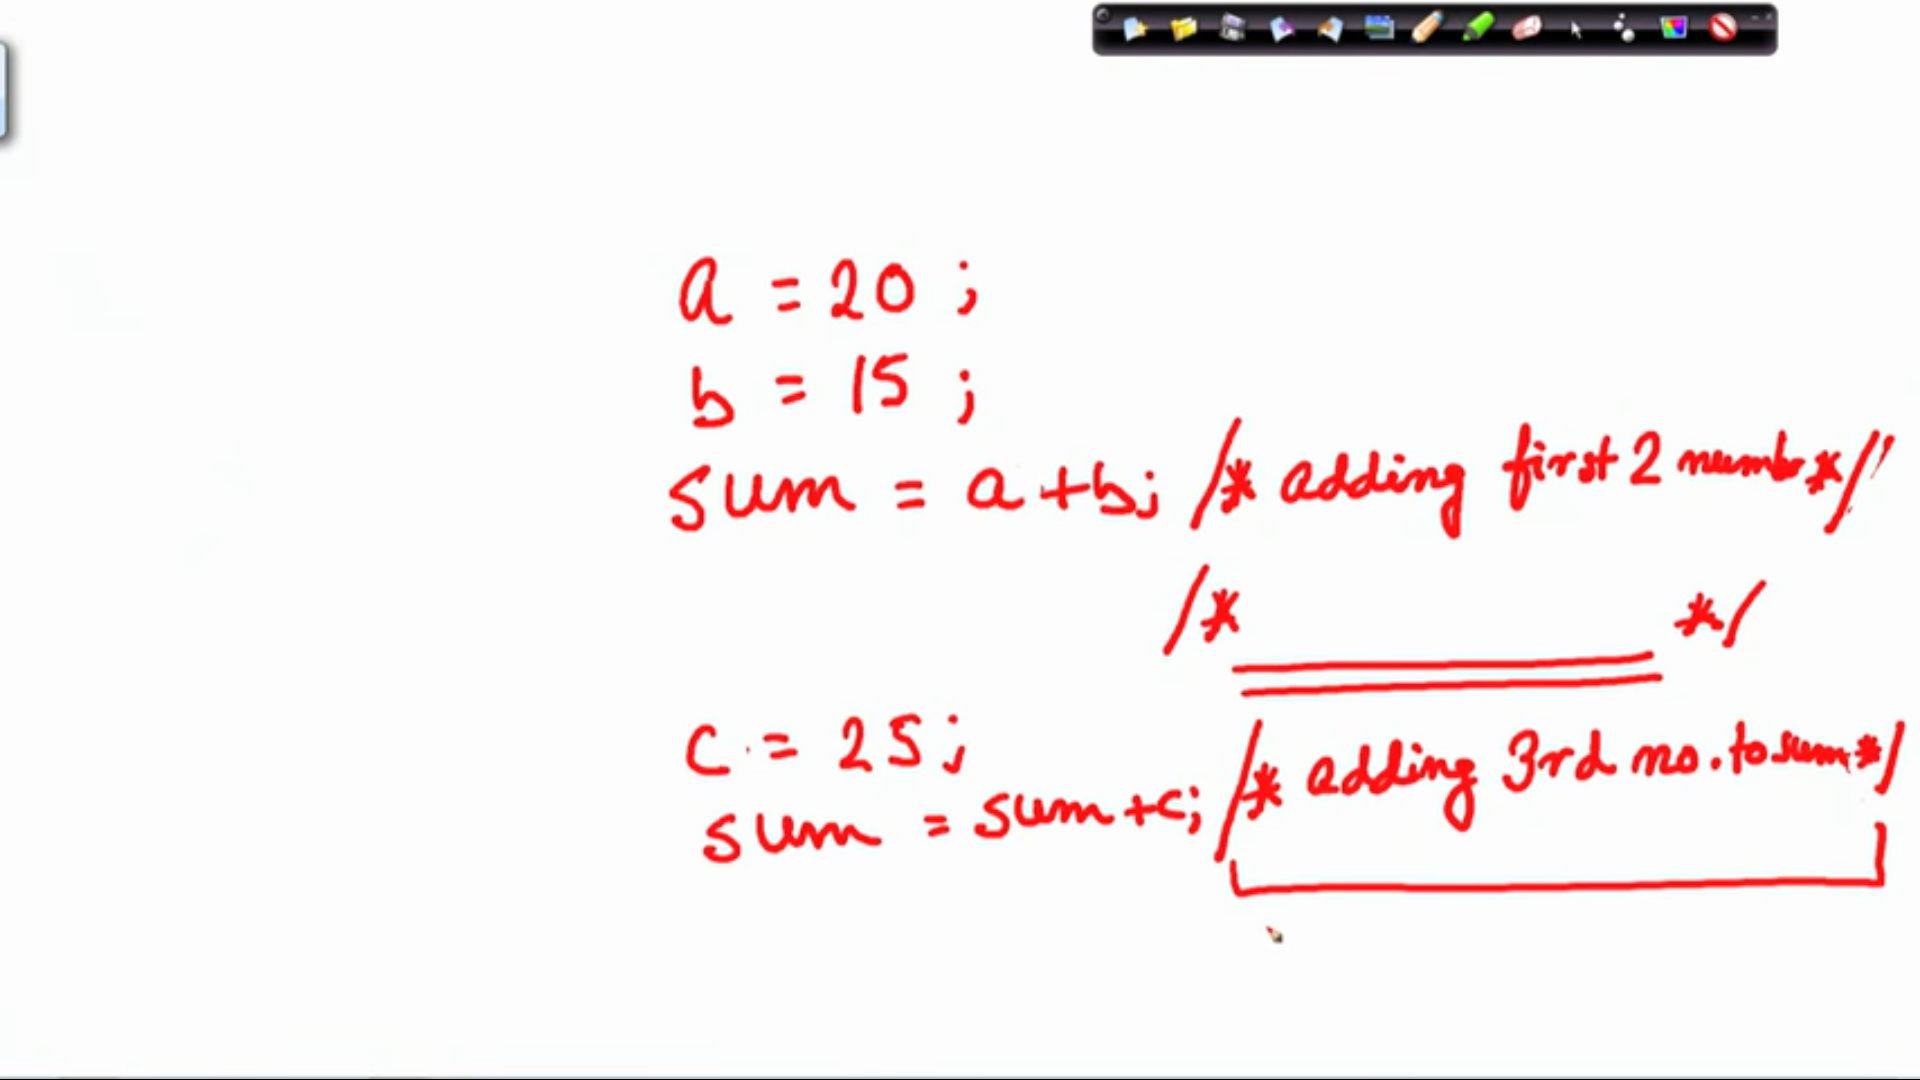 a = 20 ;
b = 15 ;
sum = a+b; /* adding first 2 numbr */
/* */
c = 25;
sum = sum+c; /* adding 3rd no. to sum */